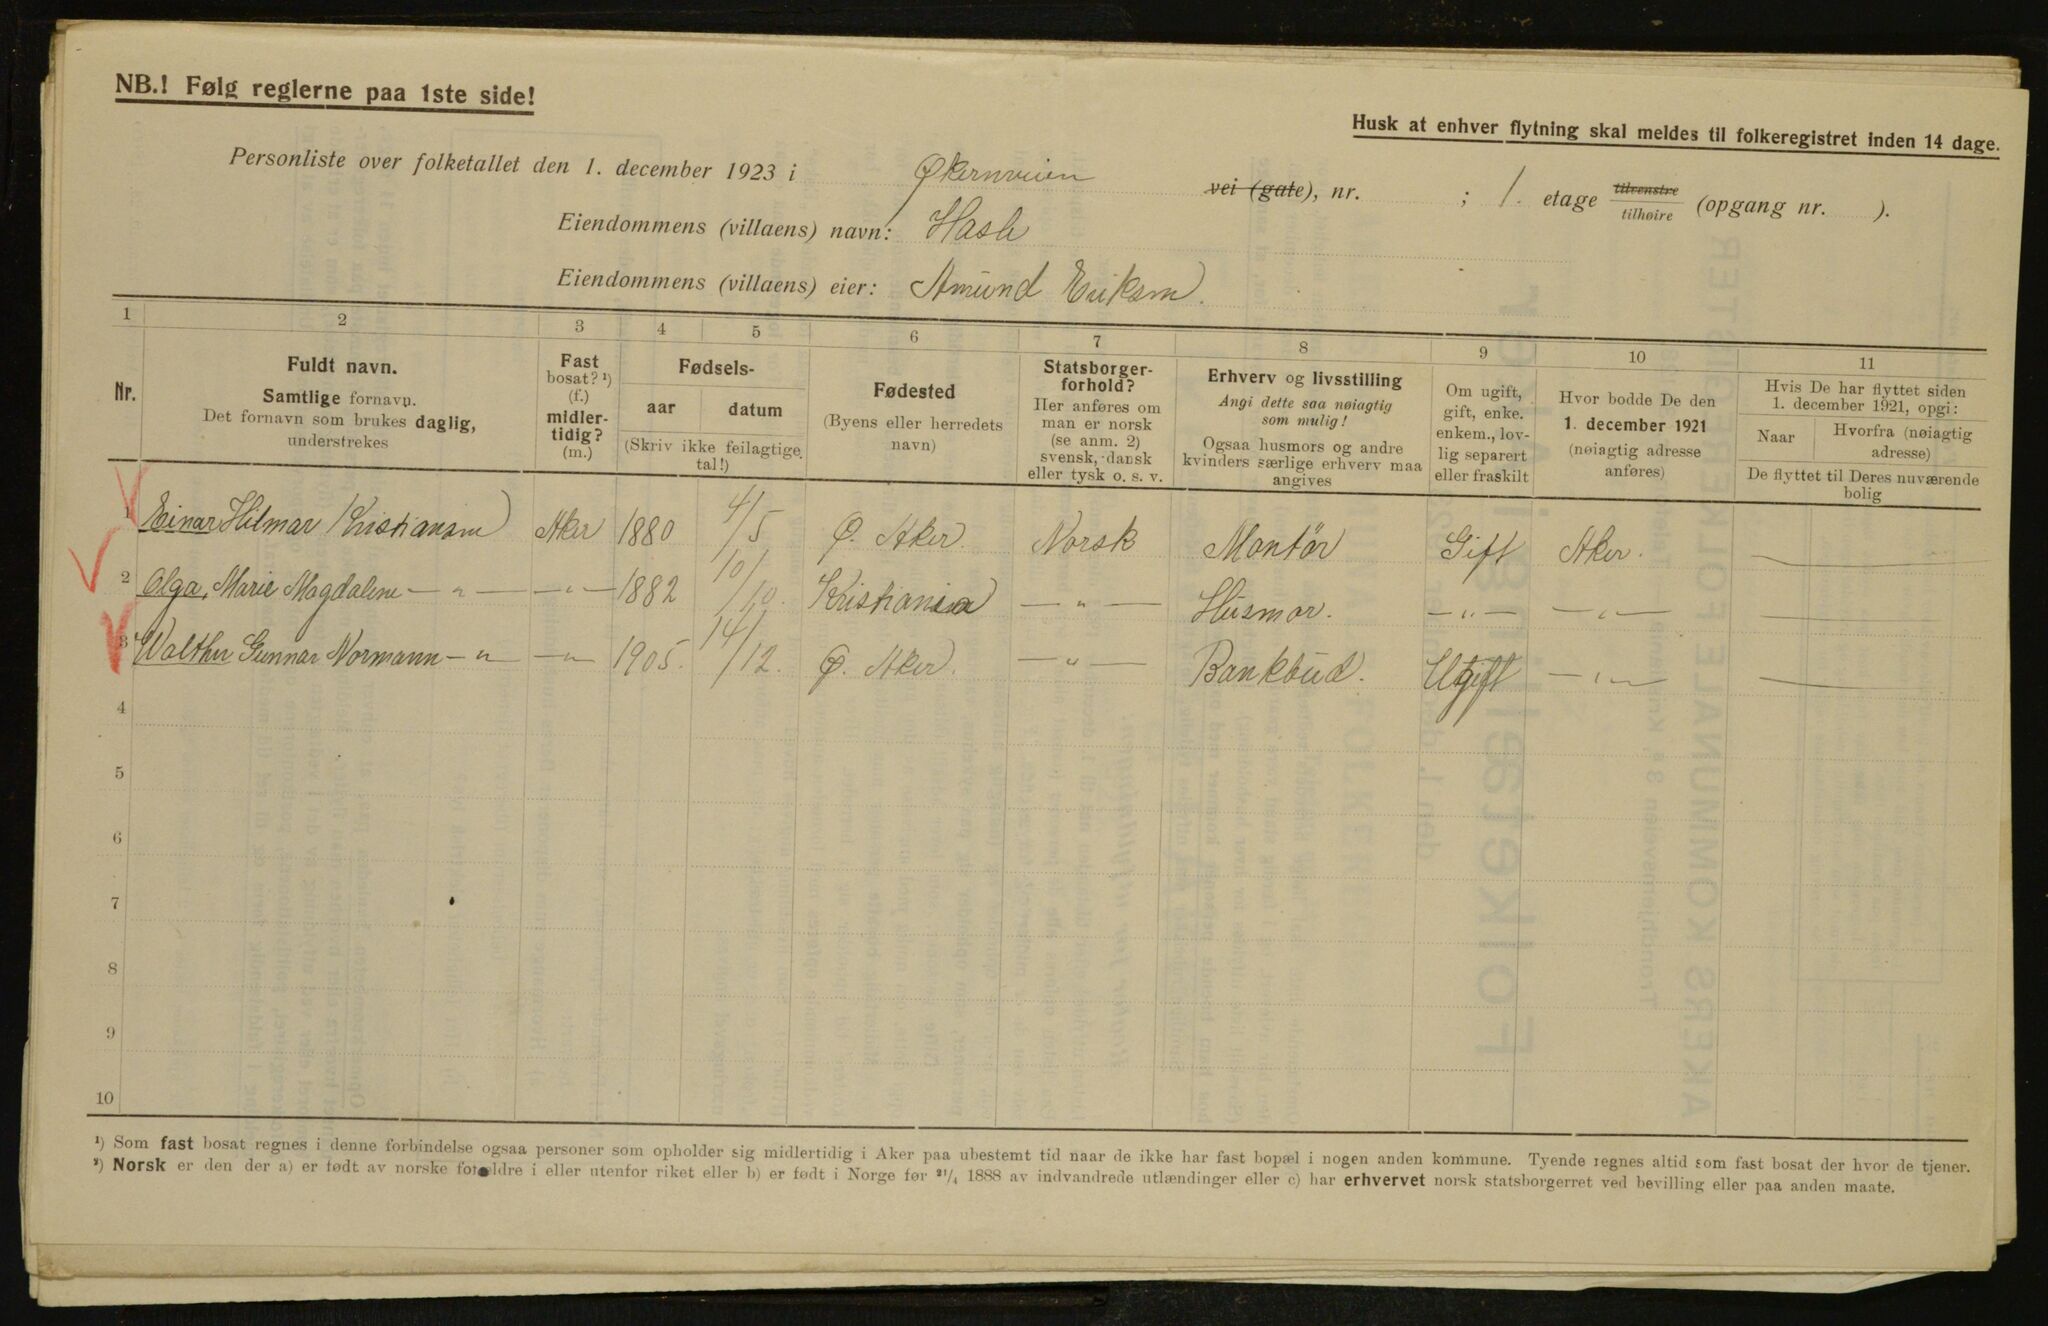 NB.! Følg reglerne paa 1ste side!
Husk at enhver flytning skal meldes til folkeregistret inden 14 dage.
Personliste over folketallet den 1. december 1923 i Økernveien vei (gate), nr. ; 1. etage tilvenstre tilhøire (opgang nr. ).
Eiendommens (villaens) navn: Hasle
Eiendommens (villaens) eier: Amund Eriksen.
1 2 3 4 5 6 7 8 9 10 11
Nr.
Fuldt navn.
Samtlige fornavn.
Det fornavn som brukes daglig,
understrekes
Fast
bosat? ¹)
(f.)
midler-
tidig?
(m.)
Fødsels-
aar datum
(Skriv ikke feilagtige
tal!)
Fødested
(Byens eller herredets
navn)
Statsborger-
forhold?
Her anføres om
man er norsk
(se anm. 2)
svensk, dansk
eller tysk o. s. v.
Erhverv og livsstilling
Angi dette saa nøiagtig
som mulig!
Ogsaa husmors og andre
kvinders særlige erhverv maa
angives
Om ugift,
gift, enke.
enkem., lov-
lig separert
eller fraskilt
Hvor bodde De den
1. december 1921
(nøiagtig adresse
anføres)
Hvis De har flyttet siden
1. december 1921, opgi:
Naar Hvorfra (nøiagtig
adresse)
De flyttet til Deres nuværende
bolig
1 Einar Hilmar Kristiansen Aker 1880 4/5 Ø. Aker. Norsk Montør Gift Aker. —
2 Olga, Marie Magdalene — „ — — „ — 1882 10/10. Kristiania — „ — Husmor. — „ — — „ — —
3 Walther Gunnar Normann — „ — — „ — 1905. 14/12. Ø. Aker. — „ — Bankbud. Ugift — „ — —
4
5
6
7
8
9
10
¹) Som fast bosat regnes i denne forbindelse ogsaa personer som opholder sig midlertidig i Aker paa ubestemt tid naar de ikke har fast bopæl i nogen anden kommune. Tyende regnes altid som fast bosat der hvor de tjener.
²) Norsk er den der a) er født av norske forældre i eller utenfor riket eller b) er født i Norge før ²¹/₄ 1888 av indvandrede utlændinger eller c) har erhvervet norsk statsborgerret ved bevilling eller paa anden maate.